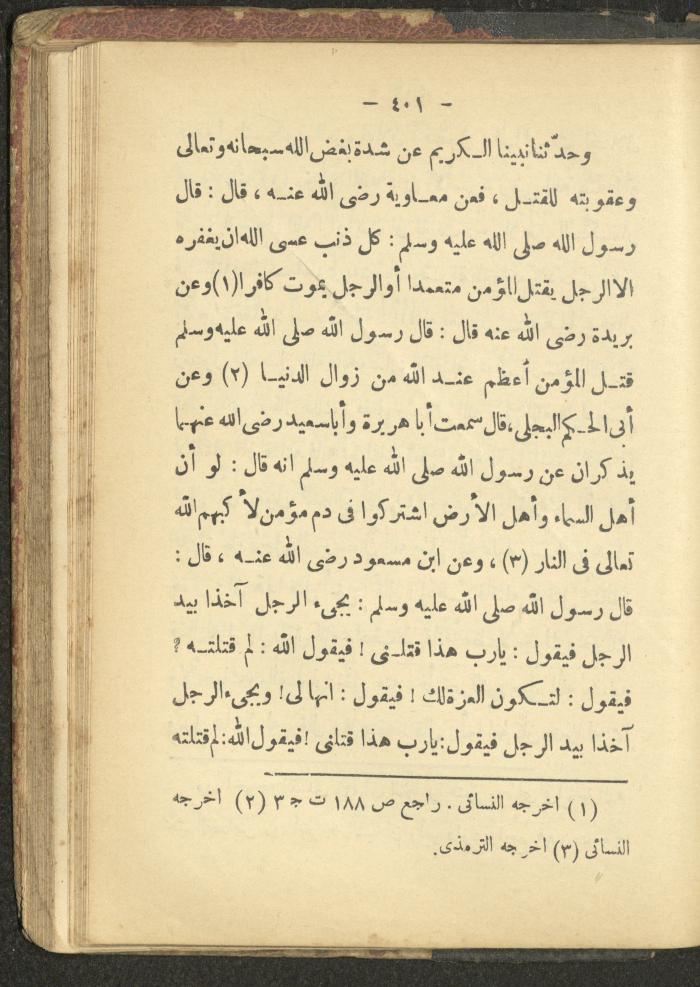 - ٤٠١ -
وحدّثنا نبينا الكريم عن شدة بغض الله سبحانه وتعالى
وعقوبته للقتل ، فعن معاوية رضى الله عنه ، قال : قال
رسول الله صلى الله عليه وسلم : كل ذنب عسى الله ان يغفره
الا الرجل يقتل المؤمن متعمدا أو الرجل يموت كافرا (١) وعن
بريدة رضى الله عنه قال : قال رسول الله صلى الله عليه وسلم
قتل المؤمن أعظم عند الله من زوال الدنيا (٢) وعن
أبى الحكم البجلى ، قال سمعت أبا هريرة وأبا سعيد رضى الله عنهما
يذكران عن رسول الله صلى الله عليه وسلم انه قال : لو أن
أهل السماء وأهل الأرض اشتركوا فى دم مؤمن لأكبهم الله
تعالى فى النار (٣) ، وعن ابن مسعود رضى الله عنه ، قال :
قال رسول الله صلى الله عليه وسلم : يجىء الرجل آخذا بيد
الرجل فيقول : يارب هذا قتلنى ! فيقول الله : لم قتلته ؟
فيقول : لتكون العزة لك ! فيقول : انها لى ! ويجىء الرجل
آخذا بيد الرجل فيقول : يارب هذا قتلنى ! فيقول الله : لم قتلته
(١) اخرجه النسائى . راجع ص ١٨٨ ت ج ٣ (٢) اخرجه
النسائى (٣) اخرجه الترمذى .